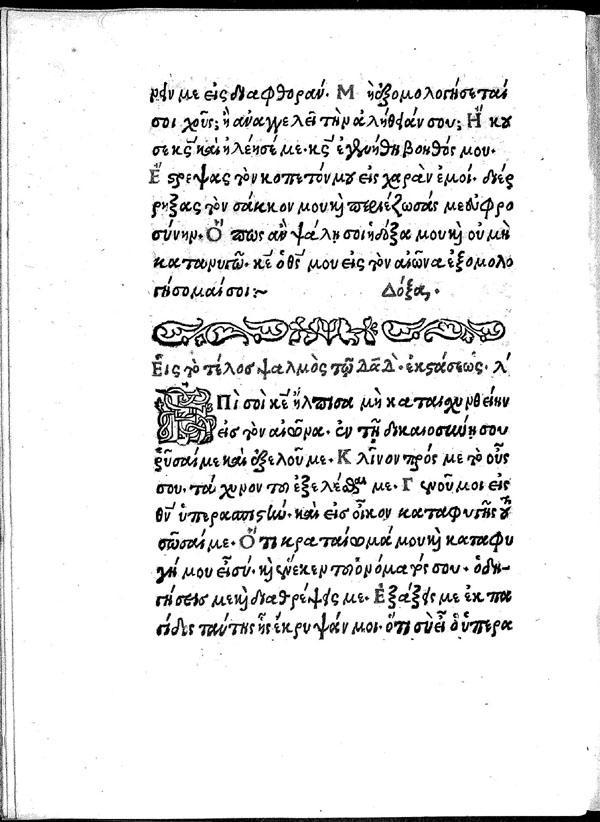 ρᾶν με εἰς διαφθοράν. Μὴ ἐξομολογήσεταί
σοι χοῦς; ἢ ἀναγγελεῖ τὴν ἀλήθειάν σου; Ἤκου
σε κ̅ς̅ καὶ ἠλέησέ με. κ̅ς̅ ἐγενήθη βοηθός μου.
Ἔστρεψας τὸν κοπετόν μου εἰς χαρὰν ἐμοί. διέρ
ρηξας τὸν σάκκον μου καὶ περιέζωσάς με εὐφρο
σύνην. Ὅπως ἂν ψάλῃ σοι ἡ δόξα μου καὶ οὐ μὴ
κατανυγῶ. κ̅ε̅ ὁ θ̅ς̅ μου εἰς τὸν αἰῶνα ἐξομολο
γήσομαί σοι:~ Δόξα,.
Εἰς τὸ τέλος ψαλμὸς τῷ Δᾱδ̄. ἐκστάσεως. λ′
ΕΠὶ σοὶ κ̅ε̅ ἤλπισα μὴ καταισχυνθείην
εἰς τὸν αἰῶνα. ἐν τῇ δικαιοσύνῃ σου
ῥῦσαί με καὶ ἐξελοῦ με. Κλῖνον πρός με τὸ οὖς
σου. τάχυνον τοῦ ἐξελέσθαι με. Γενοῦ μοι εἰς
θ̅ν̅ ὑπερασπιστὴν. καὶ εἰς οἶκον καταφυγῆς τοῦ
σῶσαί με. Ὅτι κραταίωμά μου καὶ καταφυ
γή μου εἶ σύ. καὶ ἕνεκεν τοῦ ὀνόματός σου. ὁδη-
γήσεις με καὶ διαθρέψεις με. Ἐξάξεις με ἐκ πα
γίδος ταύτης ἧς ἔκρυψάν μοι. ὅτι σὺ εἶ ὁ ὑπερα